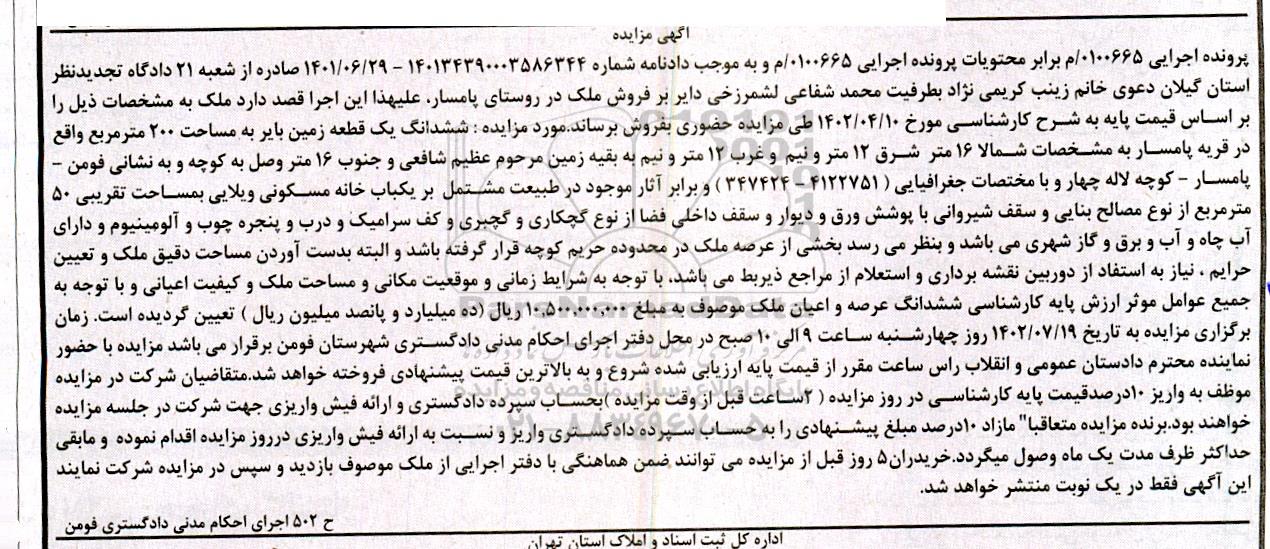 آگهی مزایده
پرونده اجرایی ۰۱۰۰۶۶۵/م برابر محتویات پرونده اجرایی ۰۱۰۰۶۶۵/م و به موجب دادنامه شماره ۱۴۰۱۳۴۳۹۰۰۰۳۵۸۶۳۴۴ – ۱۴۰۱/۰۶/۲۹ صادره از شعبه ۲۱ دادگاه تجدیدنظر
استان گیلان دعوی خانم زینب کریمی نژاد بطرفیت محمد شفاعی لشمرزخی دایر بر فروش ملک در روستای پامسار، علیهذا این اجرا قصد دارد ملک به مشخصات ذیل را
بر اساس قیمت پایه به شرح کارشناسی مورخ ۱۴۰۲/۰۴/۱۰ طی مزایده حضوری بفروش برساند.مورد مزایده : ششدانگ یک قطعه زمین بایر به مساحت ۲۰۰ مترمربع واقع
در قریه پامسار به مشخصات شمالا ۱۶ متر شرق ۱۲ متر و نیم و غرب ۱۲ متر و نیم به بقیه زمین مرحوم عظیم شافعی و جنوب ۱۶ متر وصل به کوچه و به نشانی فومن –
پامسار – کوچه لاله چهار و با مختصات جغرافیایی ( ۴۱۲۲۷۵۱– ۳۴۷۴۲۴ ) و برابر آثار موجود در طبیعت مشتمل بر یکباب خانه مسکونی ویلایی بمساحت تقریبی ۵۰
مترمربع از نوع مصالح بنایی و سقف شیروانی با پوشش ورق و دیوار و سقف داخلی فضا از نوع گچکاری و گچبری و کف سرامیک و درب و پنجره چوب و آلومینیوم و دارای
آب چاه و آب و برق و گاز شهری می باشد و بنظر می رسد بخشی از عرصه ملک در محدوده حریم کوچه قرار گرفته باشد و البته بدست آوردن مساحت دقیق ملک و تعیین
حرایم ، نیاز به استفاد از دوربین نقشه برداری و استعلام از مراجع ذیربط می باشد. با توجه به شرایط زمانی و موقعیت مکانی و مساحت ملک و کیفیت اعیانی و با توجه به
جمیع عوامل موثر ارزش پایه کارشناسی ششدانگ عرصه و اعیان ملک موصوف به مبلغ ۱۰,۵۰۰,۰۰۰,۰۰۰ ریال (ده میلیارد و پانصد میلیون ریال ) تعیین گردیده است. زمان
برگزاری مزایده به تاریخ ۱۴۰۲/۰۷/۱۹ روز چهارشنبه ساعت ۹ الی ۱۰ صبح در محل دفتر اجرای احکام مدنی دادگستری شهرستان فومن برقرار می باشد مزایده با حضور
نماینده محترم دادستان عمومی و انقلاب راس ساعت مقرر از قیمت پایه ارزیابی شده شروع و به بالاترین قیمت پیشنهادی فروخته خواهد شد.متقاضیان شرکت در مزایده
موظف به واریز ۱۰درصدقیمت پایه کارشناسی در روز مزایده ( ۲ساعت قبل از وقت مزایده )بحساب سپرده دادگستری و ارائه فیش واریزی جهت شرکت در جلسه مزایده
خواهند بود.برنده مزایده متعاقبا" مازاد ۱۰درصد مبلغ پیشنهادی را به حساب سپرده دادگستری واریز و نسبت به ارائه فیش واریزی درروز مزایده اقدام نموده و مابقی
حداکثر ظرف مدت یک ماه وصول میگردد.خریدران۵ روز قبل از مزایده می توانند ضمن هماهنگی با دفتر اجرایی از ملک موصوف بازدید و سپس در مزایده شرکت نمایند
این آگهی فقط در یک نوبت منتشر خواهد شد.
ح ۵۰۲ اجرای احکام مدنی دادگستری فومن
اداره کل ثبت اسناد و املاک استان تهران
ParsNamadData
پایگاه اطلاع رسانی مناقصه و مزایده
۰۲۱-۸۸۳۴۹۶۷۰-۵